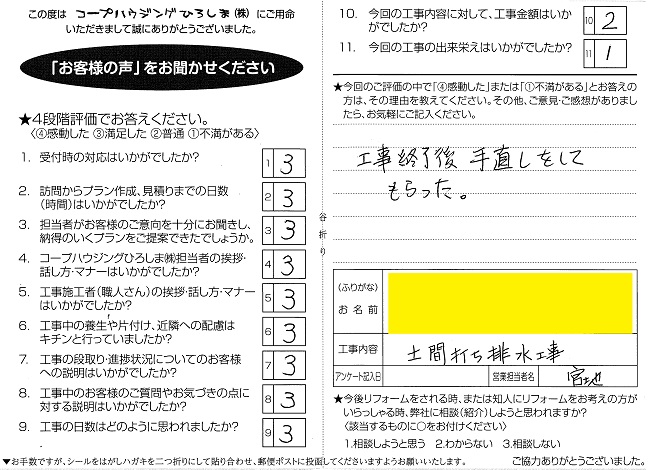 この度は コープハウジングひろしま(株) にご用命
いただきまして誠にありがとうございました。
「お客様の声」をお聞かせください
★4段階評価でお答えください。
〈④感動した ③満足した ②普通 ①不満がある〉
1. 受付時の対応はいかがでしたか? 1 3
2. 訪問からプラン作成、見積りまでの日数
(時間)はいかがでしたか? 2 3
3. 担当者がお客様のご意向を十分にお聞きし、
納得のいくプランをご提案できたでしょうか。 3 3
4. コープハウジングひろしま㈱担当者の挨拶・
話し方・マナーはいかがでしたか? 4 3
5. 工事施工者(職人さん)の挨拶・話し方・マナー
はいかがでしたか? 5 3
6. 工事中の養生や片付け、近隣への配慮は
キチンと行っていましたか? 6 3
7. 工事の段取り・進捗状況についてのお客様
への説明はいかがでしたか? 7 3
8. 工事中のお客様のご質問やお気づきの点に
対する説明はいかがでしたか? 8 3
9. 工事の日数はどのように思われましたか? 9 3
▼お手数ですが、シールをはがしハガキを二つ折りにして貼り合わせ、郵便ポストに投函してくださいますようお願いいたします。
谷折り
10. 今回の工事内容に対して、工事金額はいか
がでしたか? 10 2
11. 今回の工事の出来栄えはいかがでしたか? 11 1
★今回のご評価の中で「④感動した」または「①不満がある」とお答えの
方は、その理由を教えてください。その他、ご意見・ご感想がありまし
たら、お気軽にご記入ください。
工事終了後 手直しをして
もらった。
(ふりがな)
お名前
工事内容 土間打ち排水工事
アンケート記入日 営業担当者名 宮地
★今後リフォームをされる時、または知人にリフォームをお考えの方が
いらっしゃる時、弊社に相談(紹介)しようと思われますか?
〈該当するものに○をお付けください〉
1.相談しようと思う 2.わからない 3.相談しない
ご協力ありがとうございました。